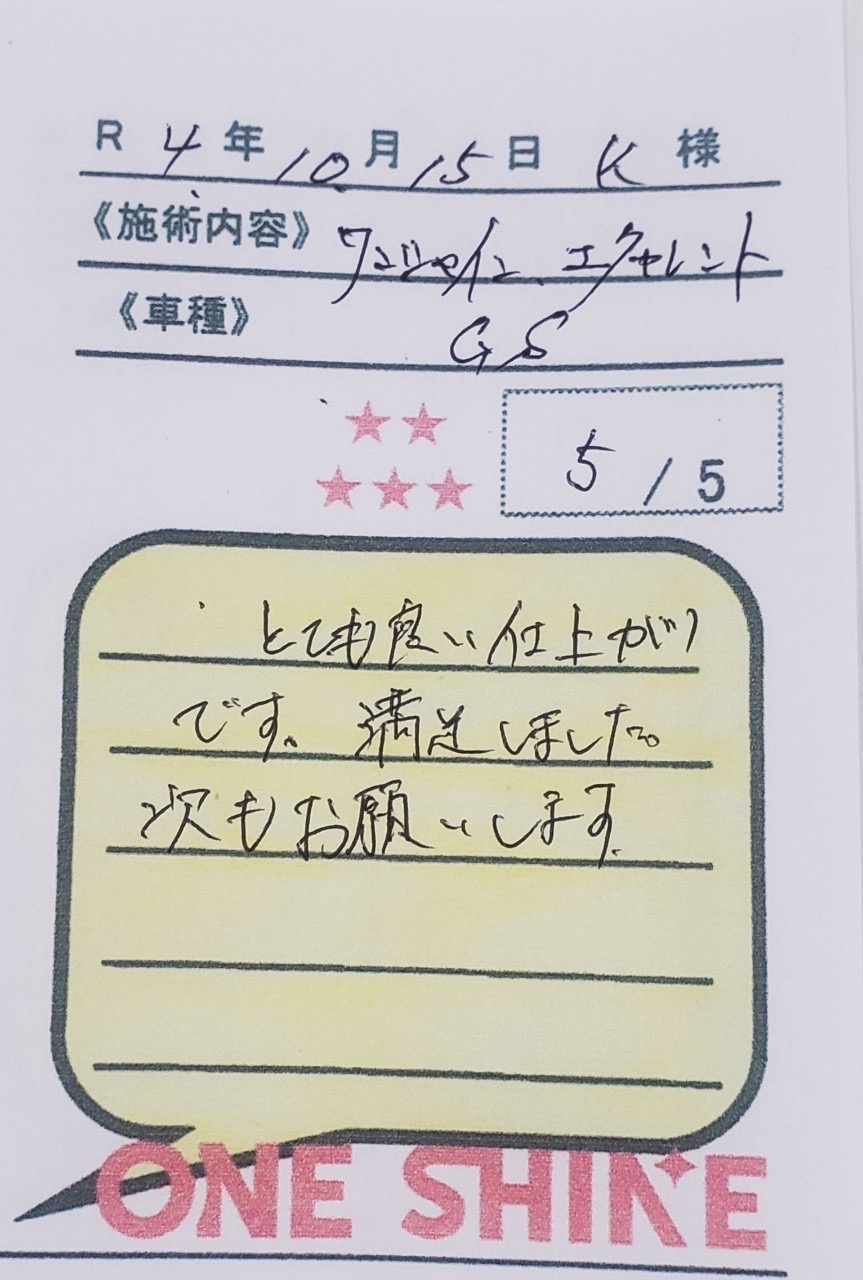 R 4年10月15日 K 様
《施術内容》ワンシャイン、エクャレント
《車種》 GS
5 / 5
とても良い仕上がり
です。満足しました。
次もお願いします。
ONE SHINE